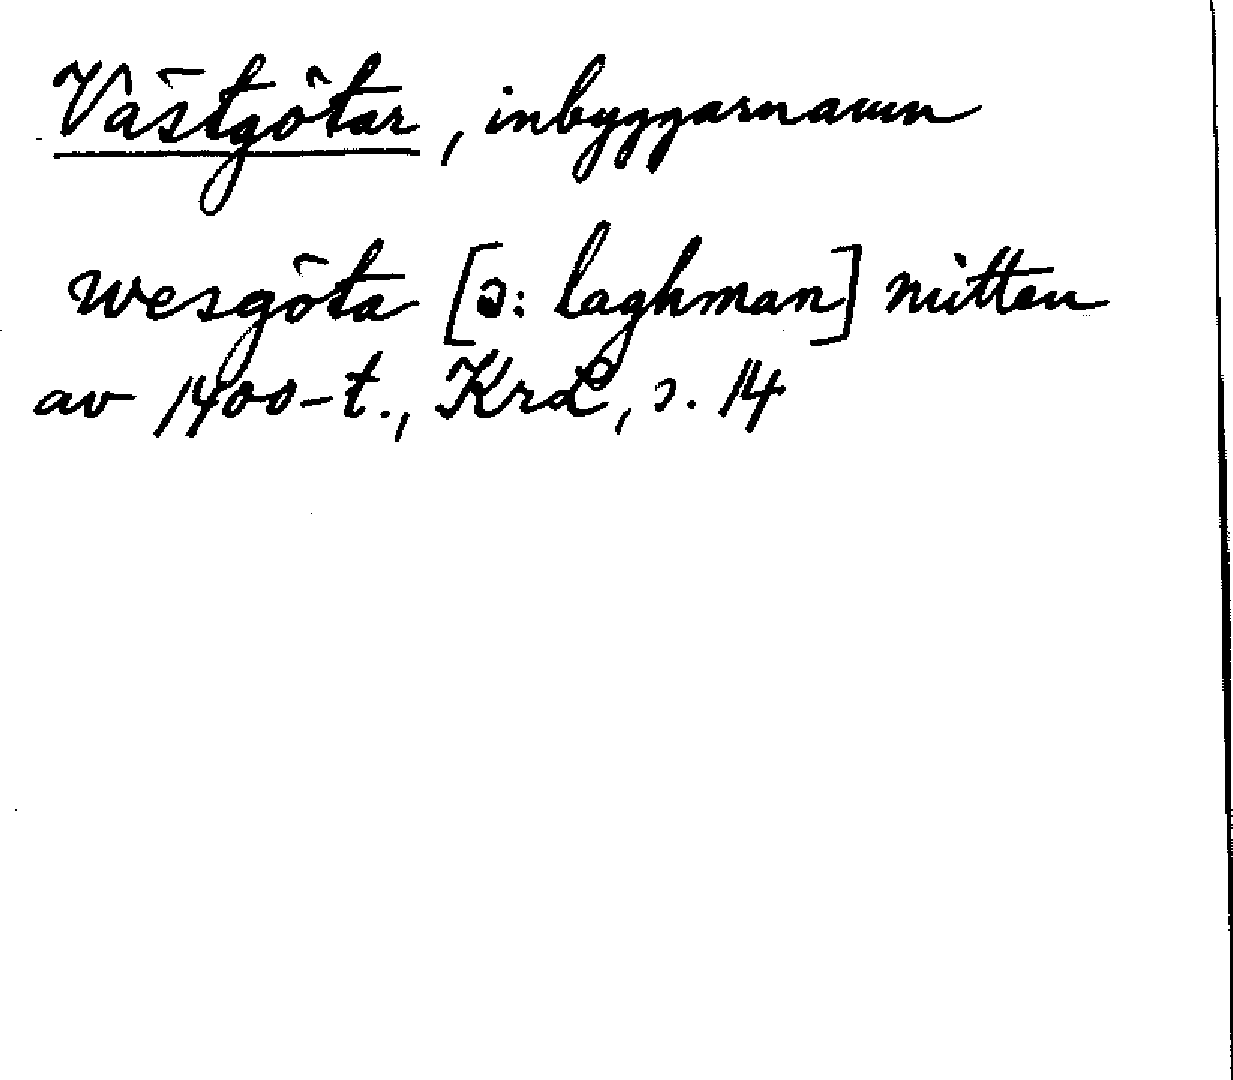 Västgötar, inbyggarnamn
wesgöta [ɔ: laghman] mitten
av 1400-t., KrL, s. 14